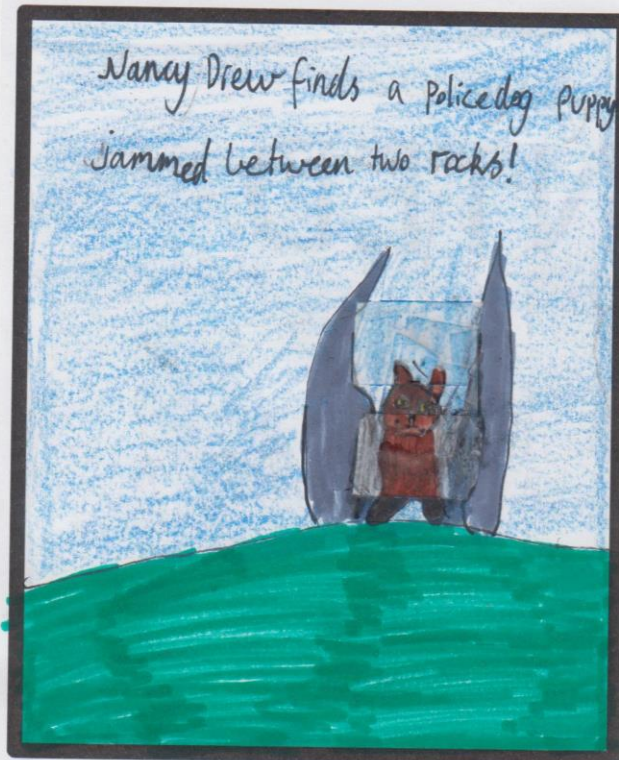 Nancy Drew finds a policedog puppy
jammed between two rocks!